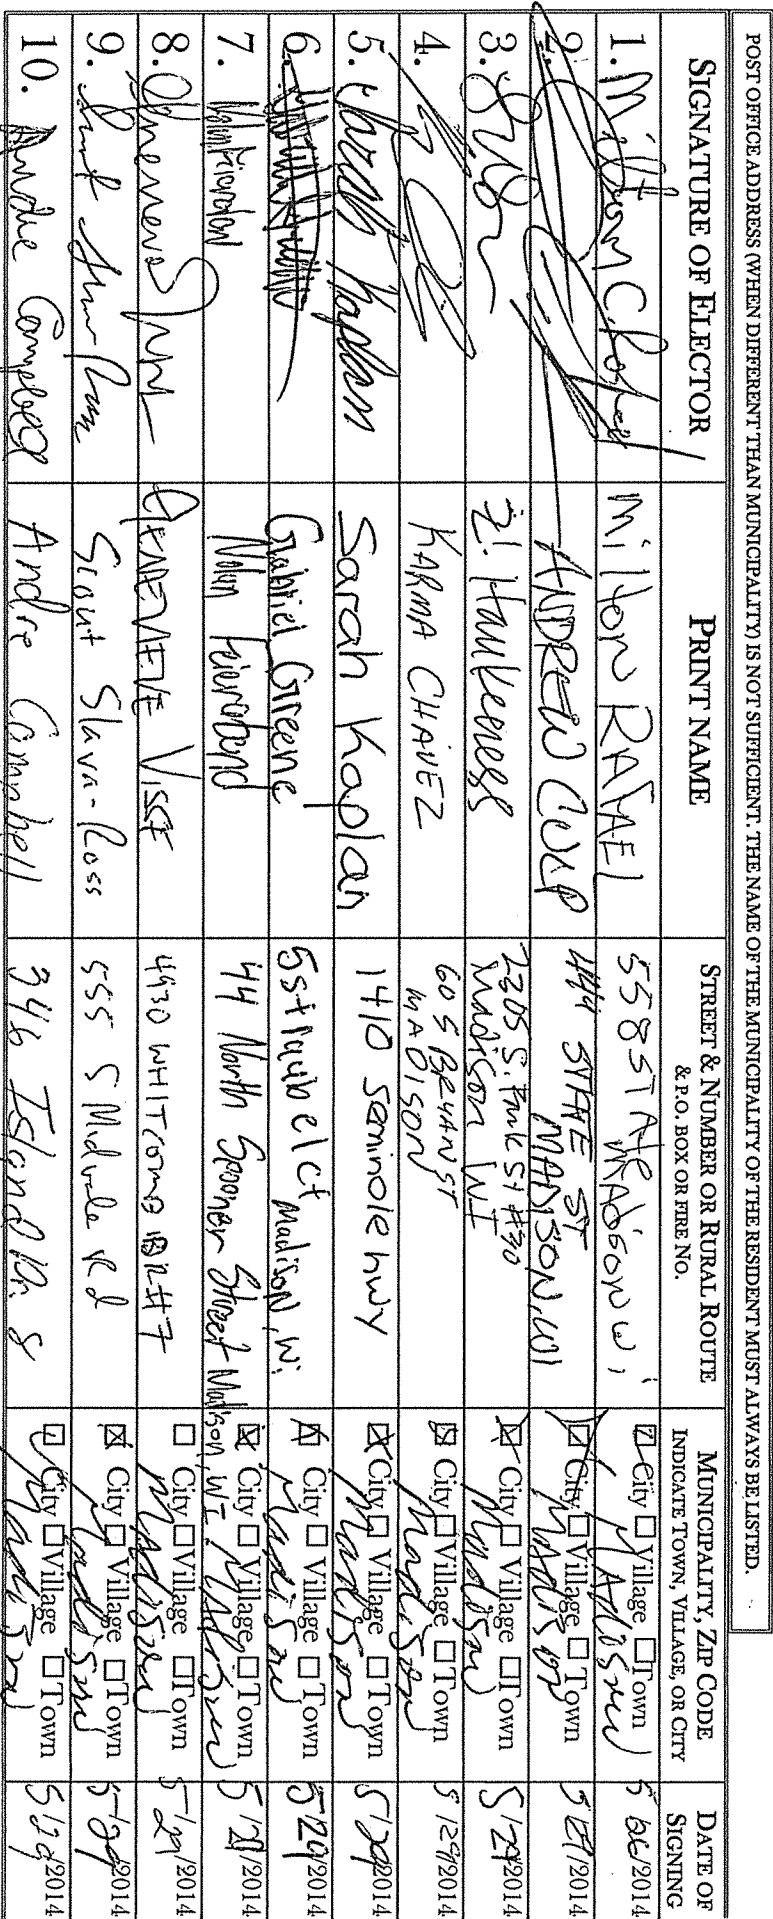 POST OFFICE ADDRESS (WHEN DIFFERENT THAN MUNICIPALITY) IS NOT SUFFICIENT. THE NAME OF THE MUNICIPALITY OF THE RESIDENT MUST ALWAYS BE LISTED.
SIGNATURE OF ELECTOR PRINT NAME STREET & NUMBER OR RURAL ROUTE & P.O. BOX OR FIRE NO. MUNICIPALITY, ZIP CODE INDICATE TOWN, VILLAGE, OR CITY DATE OF SIGNING
1. Milton C. Milton RAFAEL 558 STATE MADISON Wi City Village Town MADISON 5 /2014
2. ANDREW CULP 444 STATE ST MADISON, WI City Village Town MADISON 5 /2014
3. Z! Haukeness 2305 S. Park St #30 Madison WI City Village Town Madison 5/29/2014
4. KARMA CHÁVEZ 60 S BRYAN ST MADISON City Village Town Madison 5/29/2014
5. Sarah Kaplan Sarah Kaplan 1410 Seminole hwy City Village Town Madison 5/29/2014
6. Gabriel Greene 5 straubel ct Madison, Wi City Village Town Madison 5/29/2014
7. Nolan Feierabend 44 North Spooner Street Madison, WI City Village Town Madison 5/29/2014
8. GENEVIEVE 4930 WHITCOMB DR #7 City Village Town Madison 5/29/2014
9. Scout Slava-Ross 555 S Midvale City Village Town Madison 5/29/2014
10. Andre Campbell Andre Campbell 346 Island Dr. 8 City Village Town Madison 5/29/2014